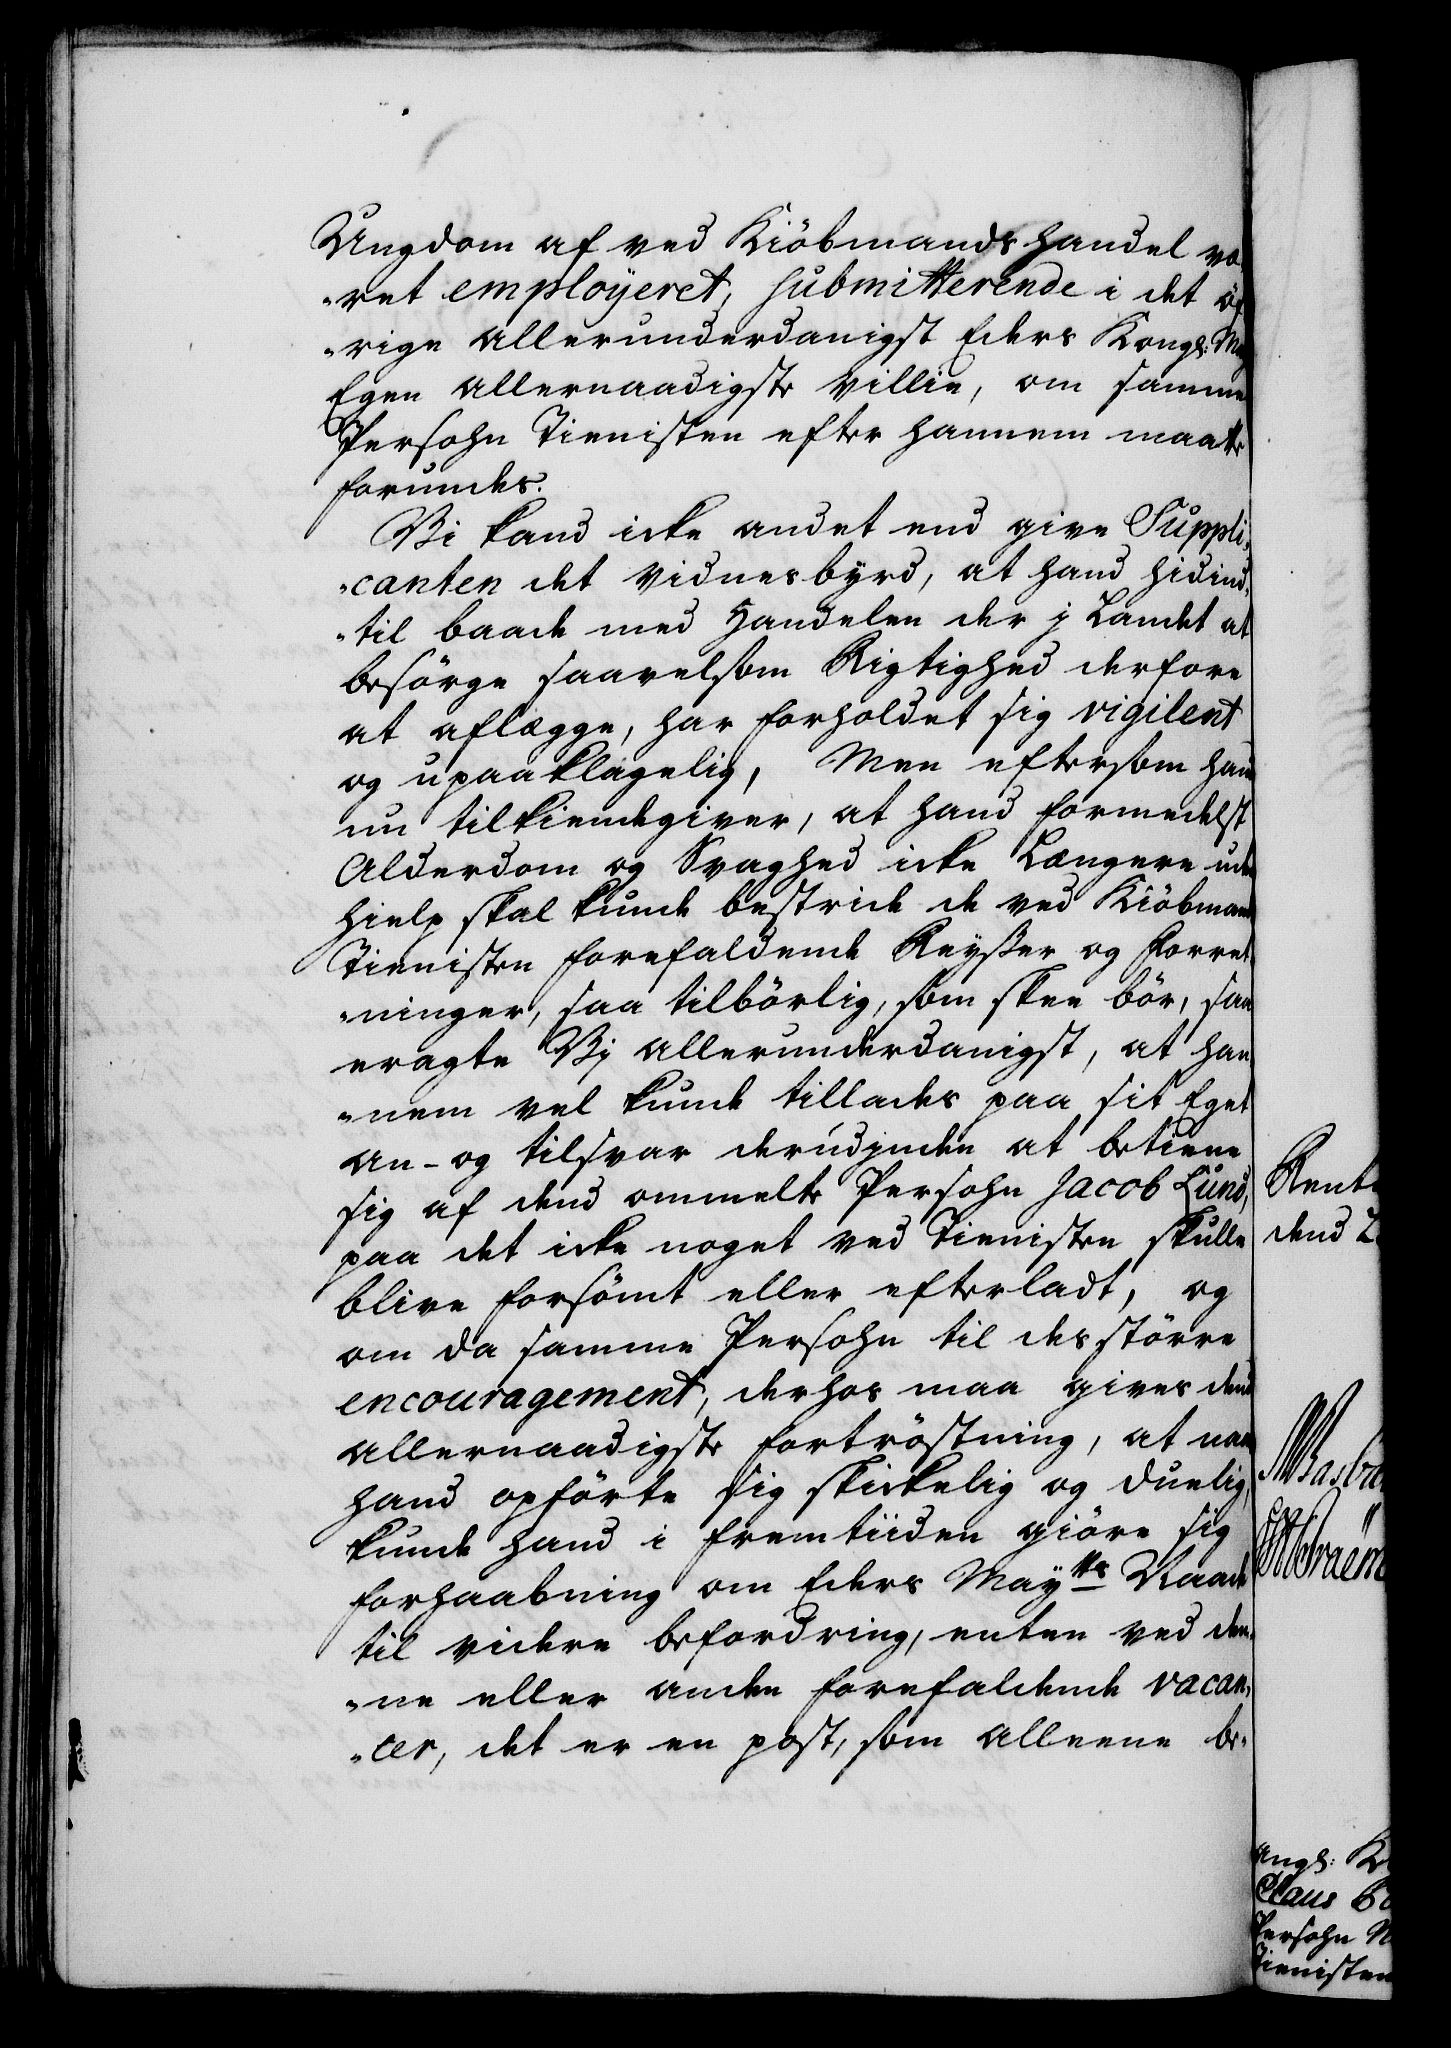 Ungdom af ved Kiöbmands handel væ-
-ret employeret, submitterende i det öf-
-rige allerunderdanigst Eders Kongl: May
Egen allernaadigste villie, om samme
Persohn Tienisten efter hannem maatte
forundes.
Vi kand icke andet end give Suppli-
-canten det vidnesbyrd, at hand hidind-
-til baade med Handelen der j Landet at
besörge saavelsom Rigtighed derfore
at aflægge, har forholdet sig vigilent
og upaaklagelig, Men eftersom hand
nu tilkiendegiver, at hand formedelst
Alderdom og Svaghed icke Længere uden
hielp skal kunde bestride de ved Kiöbmands
Tienisten forefaldende Reyßer og Forret-
-ninger, saa tilbörlig, som skee bör, saa
eragte Vj allerunderdanigst, at han-
-nem vel kunde tillades paa sit Eget
an- og tilsvar derudjnden at betiene
sig af dend ommelte Persohn Jacob Lund,
paa det icke noget ved Tienisten skulle
blive forsömt eller efterladt, og
om da samme Persohn til des större
encouragement, derhos maa gives dend
allernaadigste fortröstning, at naar
hand opförte sig skickelig og duelig,
kunde hand i fremtiiden giöre sig
forhaabning om Eders Mayts Naade
til videre befordring, enten ved den-
-ne eller anden forefaldende vacan-
-cer, det er en post, som alleene be-
Rent
dend 2
angl: K
Claus
Persohn
Tienisten